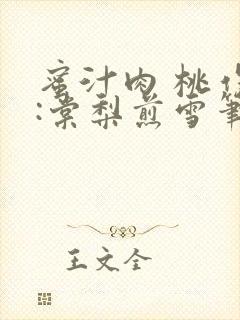 蜜汁肉桃作
:棠梨煎雪笔
王文全